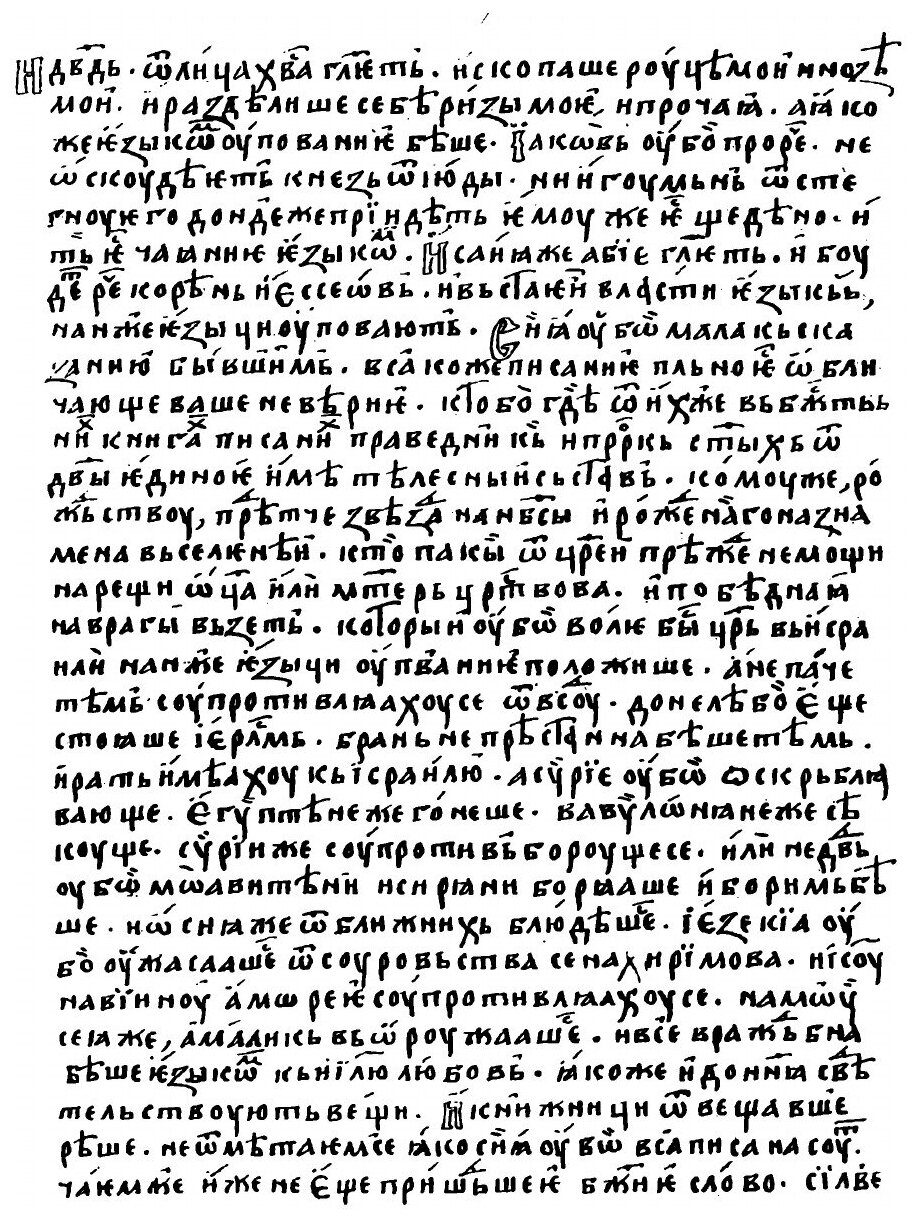 И дв҃дь · ѿ лица хв҃а гл҃ѥть · ископаше роуцѣ мои и нозѣ
мои · и раздѣлише себѣ ризы моѥ, и прочаꙗ · а ꙗко
же ѥзыкѡм оупованиѥ бѣше · Їакѡвь оубо прорⷱ҇е · не
ѡскоудѣѥть кнезь ѿ июды · ни игоумьнь ѿ сте
гноу ѥго дондеже прїидѣть ѥмоу же ѥⷭ҇ щедѣно · и
ть ѥⷭ҇ чаꙗниѥ ѥзыкѡм · Исаиꙗ же абїе гл҃ѥть · и боу
деⷮ реⷱ҇ корѣнь иѥссеѡвь · и въстаѥи власти ѥзыкы,
на нже ѥзыци оуповають · Сиꙗ оубѡ мала кь ска
заниѭ бывшимь · всако же писаниѥ пльноѥ ѡбли
чающе ваше невѣриѥ · кто бо гдѣ ѿ ихже вь бж҃ть
ниⷯ книгаⷯ писаниⷯ праведникь и прⷪ҇ркь ст҃ыхь ѿ
дв҃ы ѥдиноѥ имѣ тѣлесныи сьставь · комоу же, ро
жⷣьствоу, прѣⷣтче звѣзⷣа на нб҃сы и рожⷣенаго назна
мена вьселѥнѣи · кто пакы ѿ цр҃еи прѣжⷣе не мощи
нарещи ѡц҃а или мт҃ерь црⷭ҇твова · и побѣднаꙗ
на врагы вьзеть · которыи оубѡ волѥ быⷭ҇ цр҃ь вь исра
или на нже ѥзыци оупваниѥ положише · а не паче
тѣмь соупротивлꙗахоусе ѿ всоу · донелѣ бо ѥще
стоꙗше ѥрⷭ҇лмь · брань непрѣстаннна бѣше тѣмь ·
и рать имѣахоу кь їсраилю · асѵрїе оубѡ оскрьблꙗ
вающе · ѥгѵптѣне же гонеше · вавѵлѡнꙗне же сѣ
коуще · сѵрїи же соупротивь бороущесе · или не дв҃дь
оубѡ мѡавитѣни и сирꙗни борꙗаше и боримь бѣ
ше · иѡсиꙗ же ѿ ближнихь блюдѣшеⷭ҇ · їѥзекїа оу
бо оужасаашеⷭ҇ ѿ соуровьства сенахирїмова · и їсоу
навїиноу амѡреѥ соупротивлꙗахоусе · на мѡѵ
сеꙗ же, амаликь вьѡроужаашеⷭ҇ · и все вражⷣьбна
бѣше ѥзыкѡм кь иї҃лю любовь · ꙗко же и до нниꙗ свѣⷣ
тельствоують вещи · И книжници ѿвещавше
рѣше · не ѿмѣтаѥмсе ꙗко сиꙗ оубѡ вса писана соуⷮ ·
чаѥмже иже не ѥще пришьшеѥ бж҃иѥ слово · сїлве